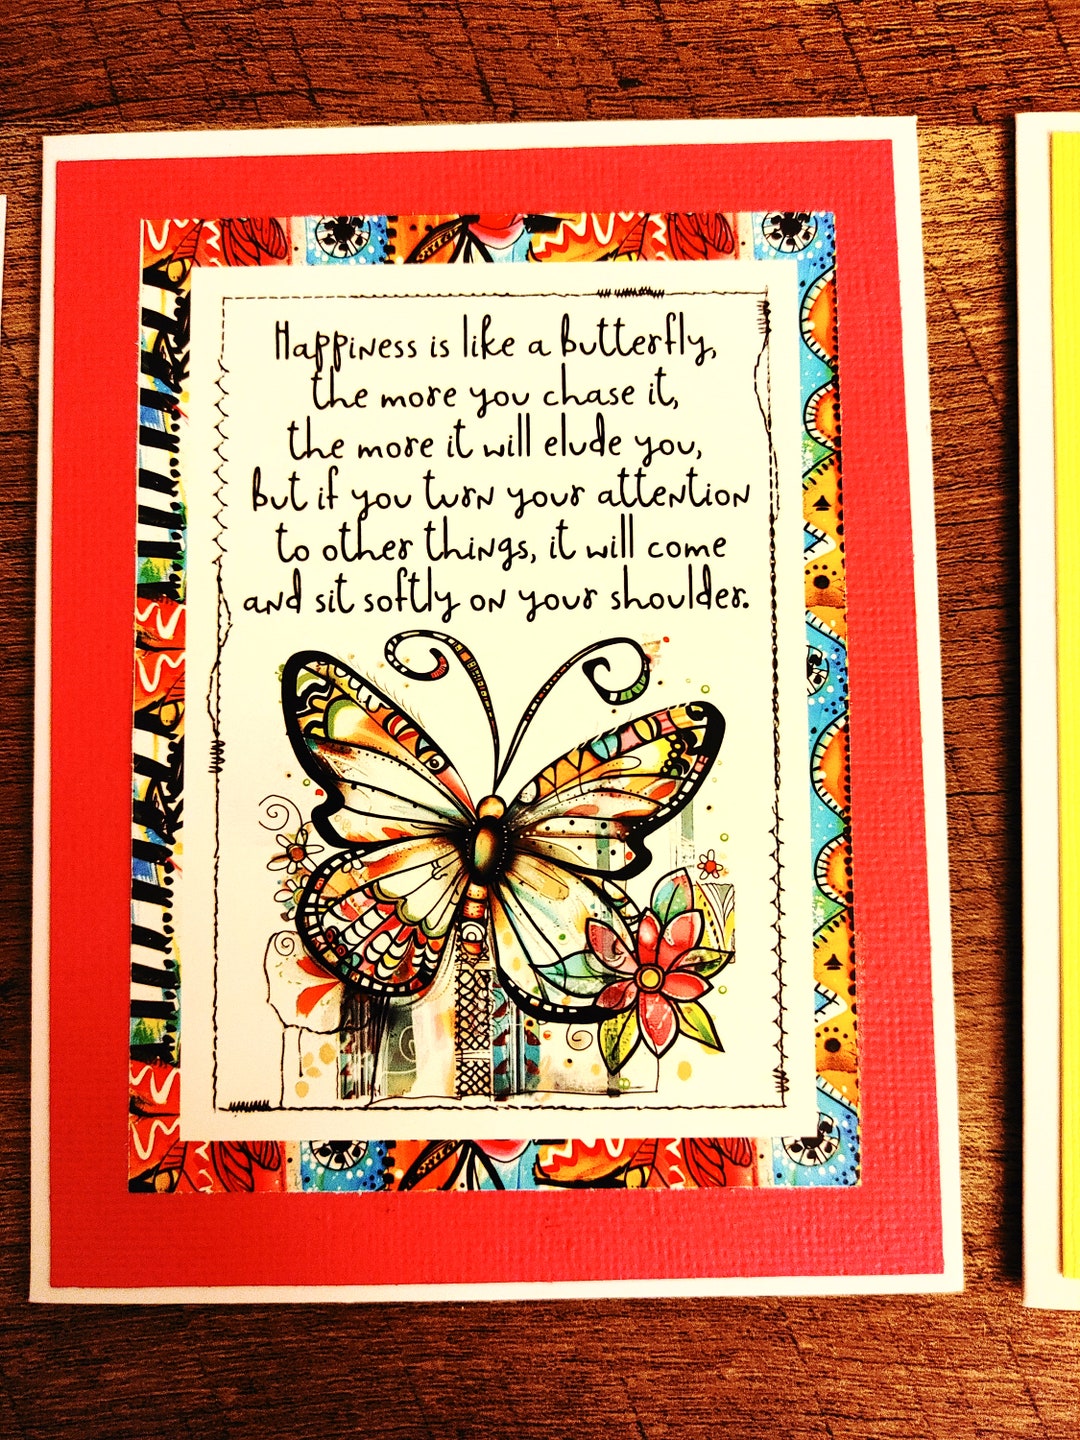 Happiness is like a butterfly,
the more you chase it,
the more it will elude you,
but if you turn your attention
to other things, it will come
and sit softly on your shoulder.